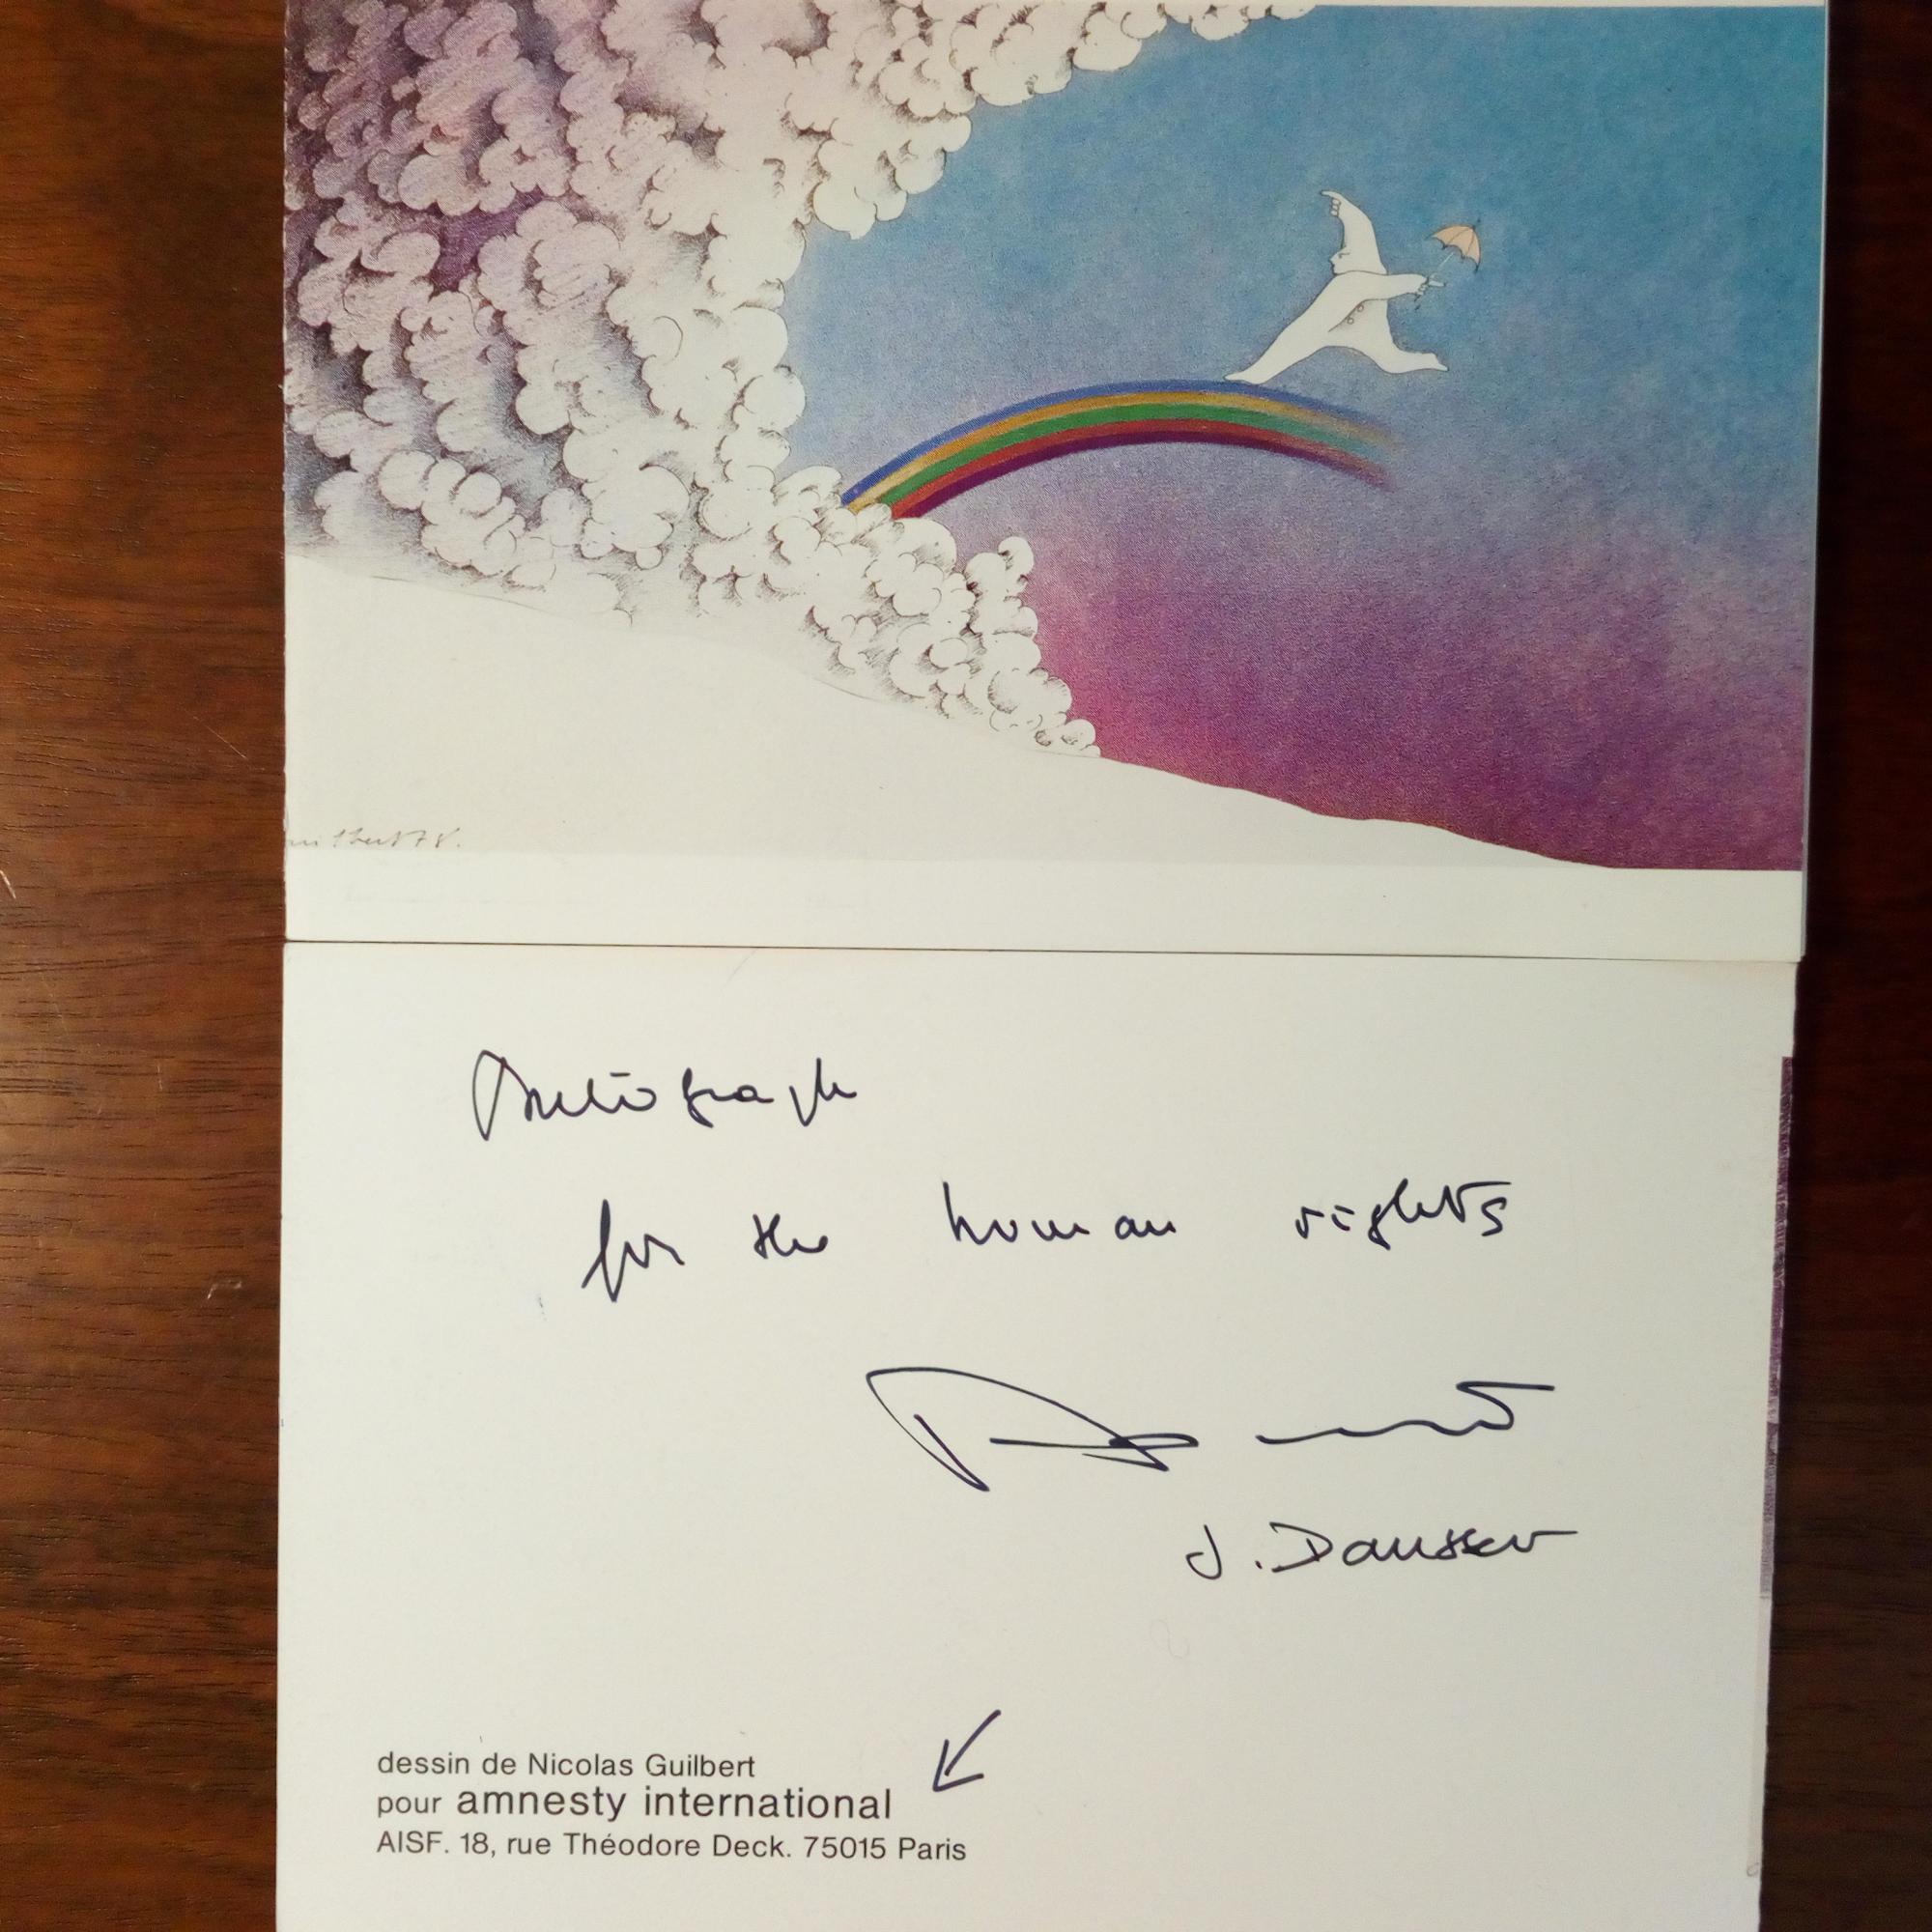 Autograph
for the human rights
J. Dausset
dessin de Nicolas Guilbert
pour amnesty international
AISF. 18, rue Théodore Deck. 75015 Paris